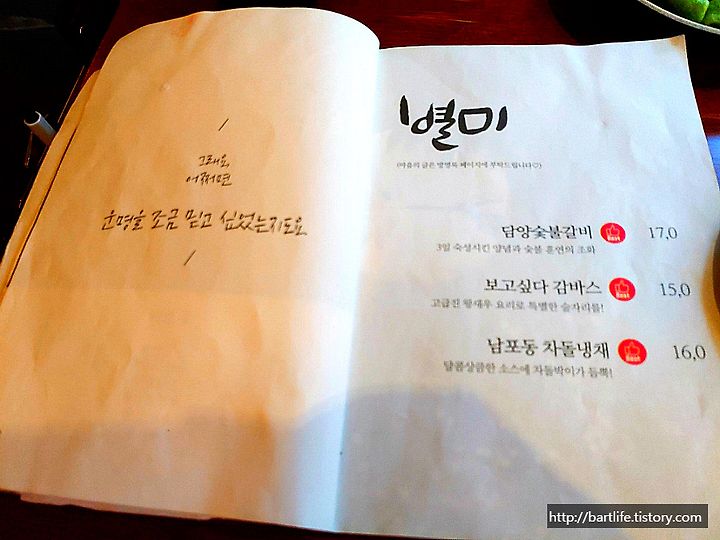 /
그래요,
어쩌면
운명을 조금 믿고 싶었는지도요.
/
별미
(마음의 글은 방명록 페이지에 부탁드립니다♡)
담양숯불갈비 Best 17,0
3일 숙성시킨 양념과 숯불 훈연의 조화
보고싶다 감바스 Best 15,0
고급진 왕새우 요리로 특별한 술자리를!
남포동 차돌냉채 Best 16,0
달콤상큼한 소스에 차돌박이가 듬뿍!
http://bartlife.tistory.com